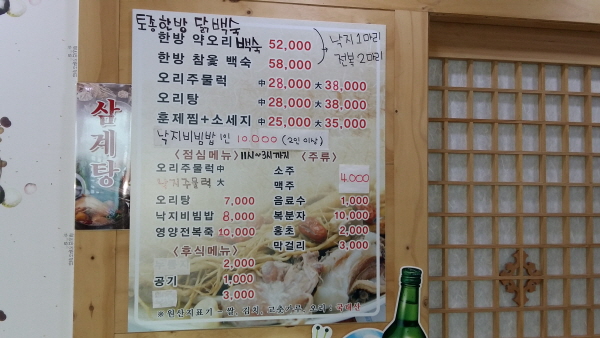 토종한방 닭백숙
한방 약오리백숙 52,000 낙지1마리
한방 참옻 백숙 58,000 전복2마리
오리주물럭 中28,000 大38,000
오리탕 中28,000 大38,000
훈제찜+소세지 中25,000 大35,000
낙지비빔밥 1인 10.000 (2인이상)
<점심메뉴> 11시~3시까지 <주류>
오리주물럭 中 소주 4.000
낙지주물럭 大 맥주
오리탕 7,000 음료수 1,000
낙지비빔밥 8,000 복분자 10,000
영양전복죽 10,000 홍초 2,000
막걸리 3,000
<후식메뉴>
2,000
공기 1,000
3,000
※원산지표기 - 쌀, 김치, 고춧가루, 오리 : 국내산
삼계탕